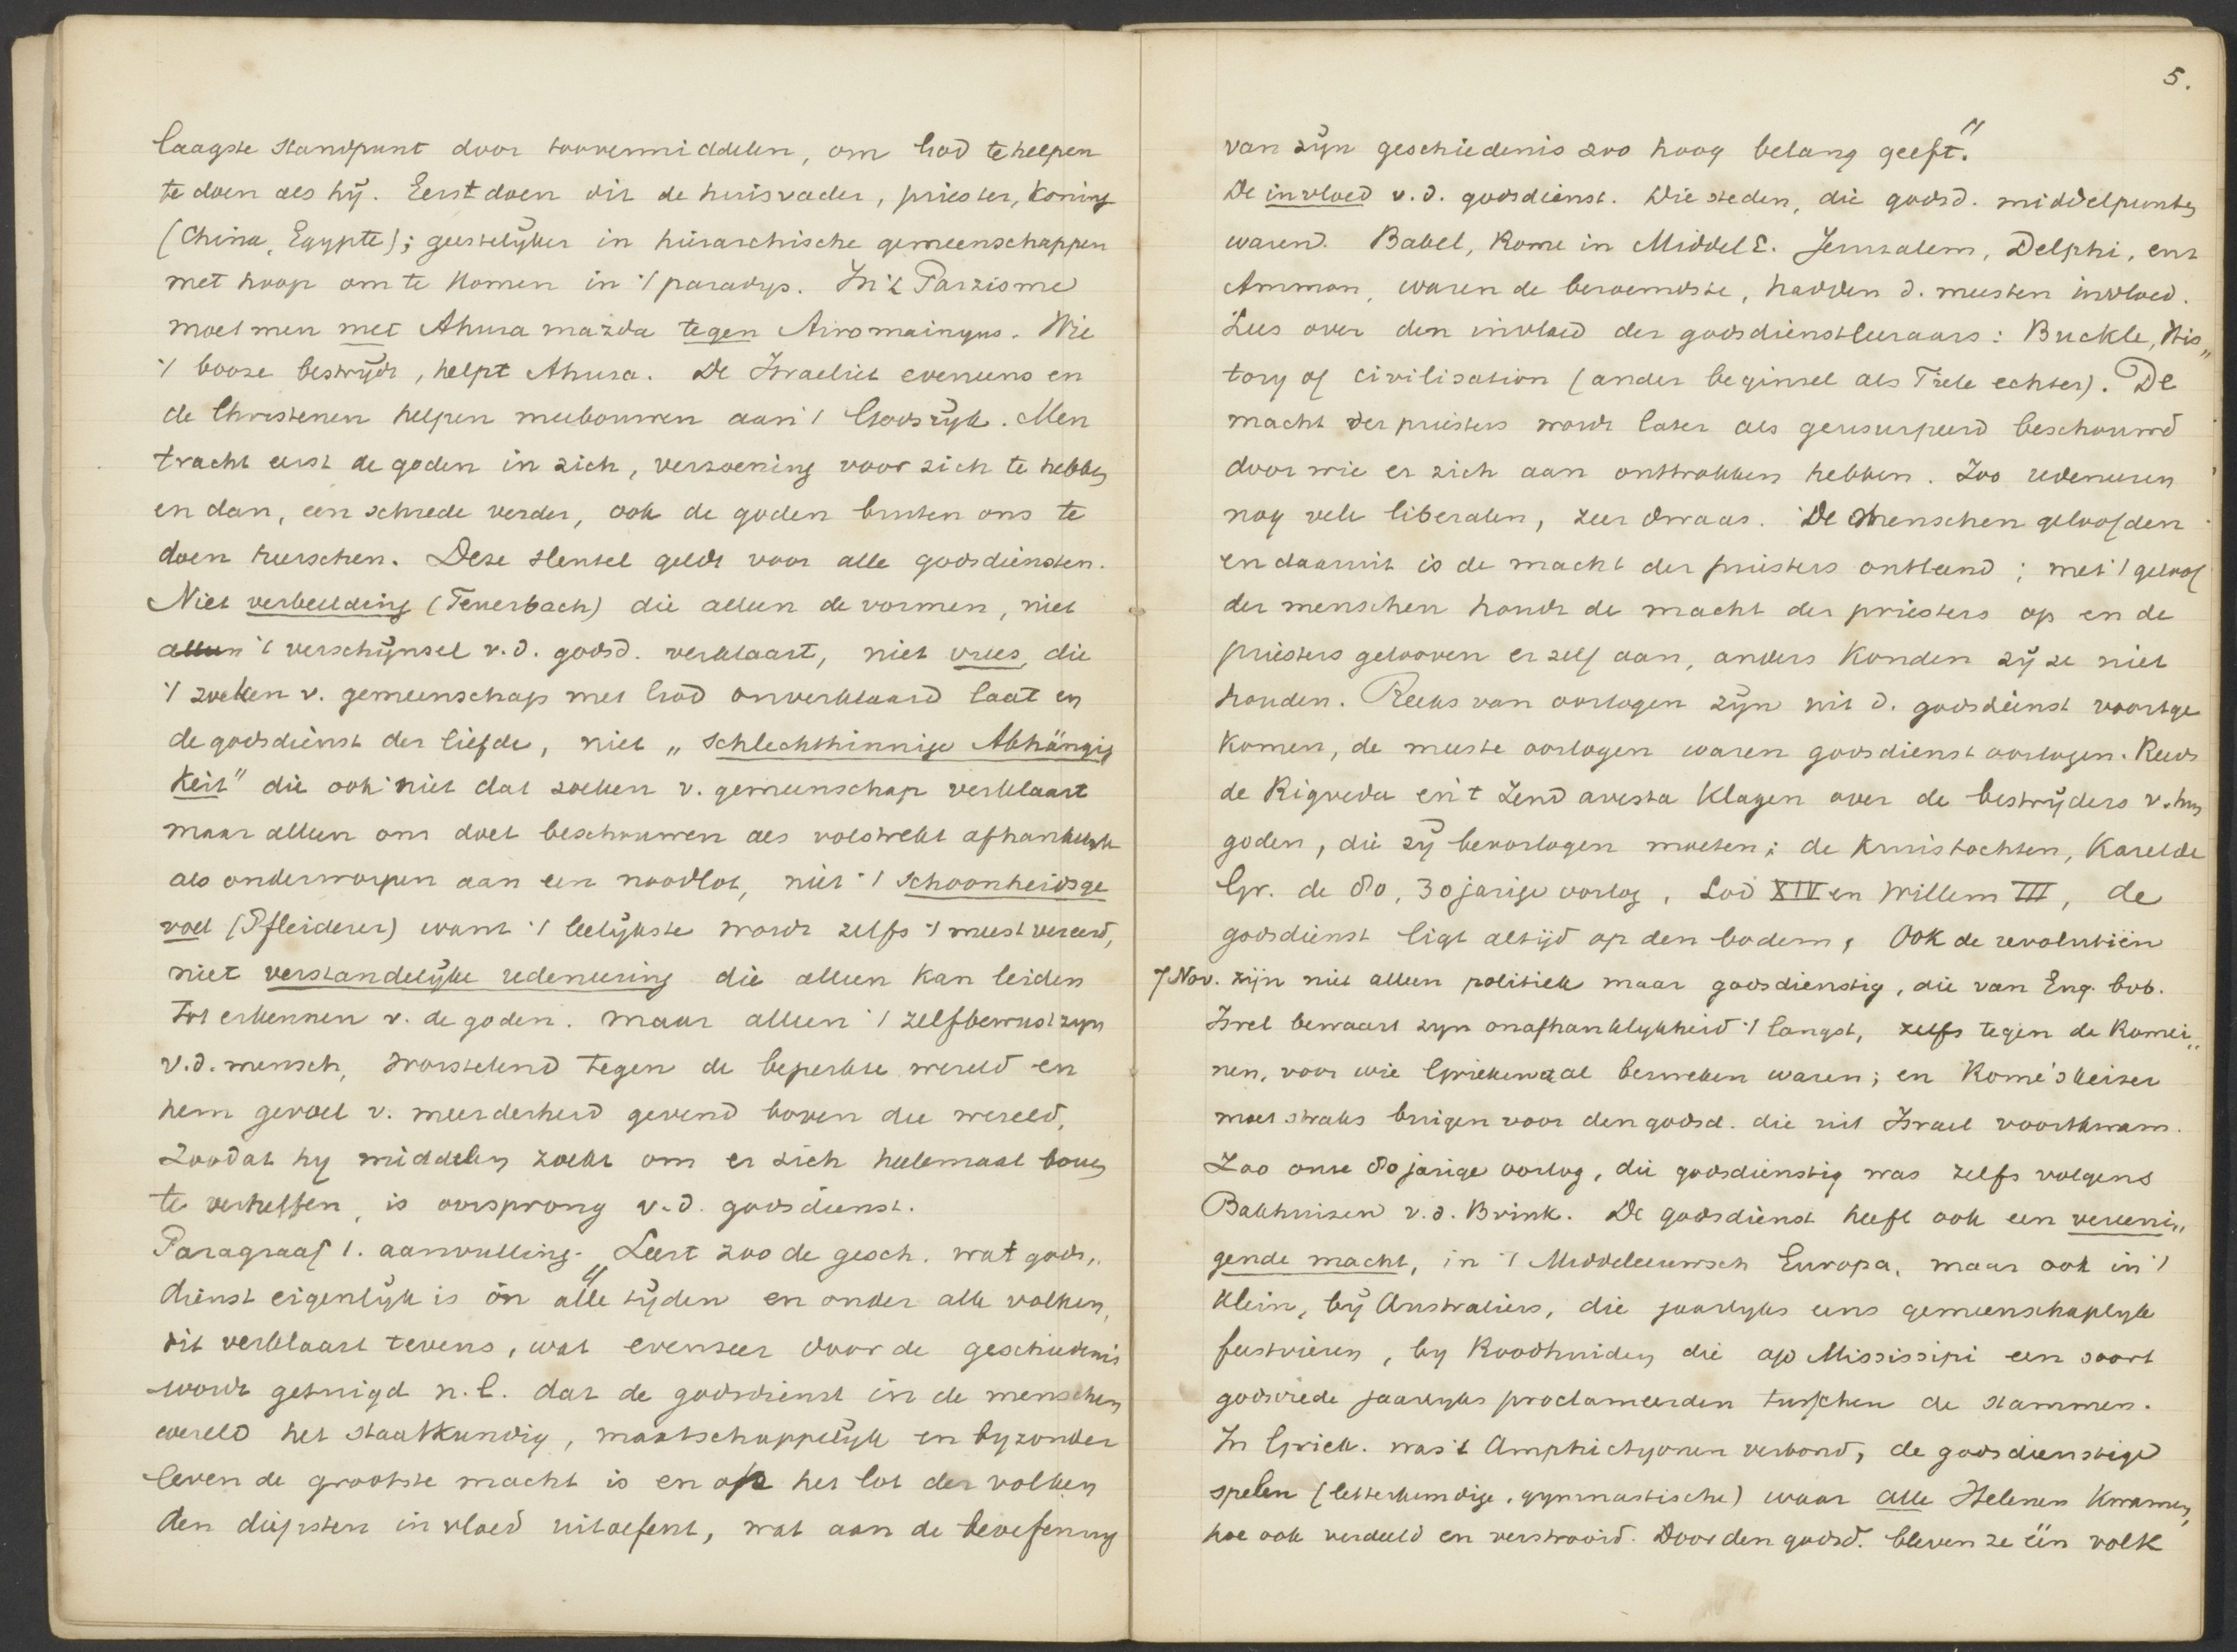 laagste standpunt door toovermiddelen, om God te helpen
te doen als hij. Eerst doen dit de huisvader, priester, Koning
(China, Egypte); geestelijker in hiërarchische gemeenschappen
met hoop om te komen in 't paradys. In 't Parzisme
moet men met Ahura mazda tegen Airomainyus. Wie
't booze bestrijdt, helpt Ahura. De Israeliet eveneens en
de Christenen helpen meebouwen aan 't Godsrijk. Men
tracht eerst de goden in zich, verzoening voor zich te hebben
en dan, een schrede verder, ook de goden buiten ons te
doen heerschen. Deze sleutel geldt voor alle godsdiensten.
Niet verbeelding (Feuerbach) die alleen de vormen, niet
alleen 't verschijnsel v.d. godsd. verklaart, niet vrees, die
't zoeken v. gemeenschap met God onverklaard laat en
de godsdienst der liefde, niet „schlechthinnige Abhängig
keit" die ook niet dat zoeken v. gemeenschap verklaart
maar alleen ons doet beschouwen als volstrekt afhankelijk
als onderworpen aan een noodlot, niet 't schoonheidsge
voel (Pfleiderer) want 't leelijkste wordt zelfs 't meest vereerd,
niet verstandelijke redeneering die alleen kan leiden
tot erkennen v. de goden. maar alleen 't zelfbewustzyn
v.d. mensch, worstelend tegen de beperkte wereld en
hem gevoel v. meerderheid gevend boven die wereld,
zoodat hy middelen zoekt om er zich heelemaal boven
te verheffen, is oorsprong v.d. godsdienst.
Paragraaf 1. aanvulling. „Leert zoo de gesch. wat gods„
dienst eigenlijk is ón alle tijden en onder alle volken,
dit verklaart tevens, wat evenzeer door de geschiedenis
wordt getuigd n.l. dat de godsdienst in de menschen
wereld het staatkundig, maatschappelijk en byzonder
leven de grootste macht is en op het lot der volken
den diepsten invloed uitoefent, wat aan de beoefening
5.
van zijn geschiedenis zoo hoog belang geeft."
De invloed v.d. godsdienst. Die steden, die godsd. middelpunten
waren. Babel, Rome in Middel E. Jeruzalem, Delphi, enz
Ammon, waren de beroemdste, hadden d. meesten invloed.
Lees over den invloed der godsdienstleeraars: Buckle, His„
tory of civilisation (ander beginsel als Tiele echter). De
macht der priesters wordt later als geusurpeerd beschouwd
door wie er zich aan onttrokken hebben. Zoo redeneeren
nog vele liberalen, zeer dwaas. De menschen geloofden
en daaruit is de macht der priesters ontstaand; met 't geloof
der menschen houdt de macht der priesters op en de
priesters gelooven er zelf aan, anders konden zij ze niet
houden. Reeks van oorlogen zijn uit d. godsdienst voortge
komen, de meeste oorlogen waren godsdienstoorlogen. Reeds
de Rigveda en 't Zend avesta klagen over de bestrijders v. hun
goden, die zij beoorlogen moeten; de kruistochten, Karel de
Gr. de 80, 30 jarige oorlog, Lod XIV en Willem III, de
godsdienst ligt altijd op den bodem, Ook de revolutiën
7 Nov. zijn niet alleen politiek maar godsdienstig, die van Eng. bvb.
Isrel bewaart zyn onafhanklykheid 't langst, zelfs tegen de Romei„
nen, voor wie Grieken al bezweken waren; en Rome's keizer
moet straks buigen voor den godsd. die uit Israel voortkwam.
Zoo onze 80 jarige oorlog, die godsdienstig was zelfs volgens
Bakhuizen v.d. Brink. De godsdienst heeft ook een vereeni„
gende macht, in 't Middeleeuwsch Europa, maar ook in 't
klein, bij Australiers, die jaarlyks eens gemeenschaplyk
feestvieren, by Roodhuiden die op Mississipi een soort
godsvrede jaarlyks proclameerden tusschen de stammen.
In Griek. was 't Amphictyonen verbond, de godsdienstige
spelen (letterkundige, gymnastische) waar alle Helenen kwamen,
hoe ook verdeeld en verstrooid. Door den godsd. bleven ze één volk